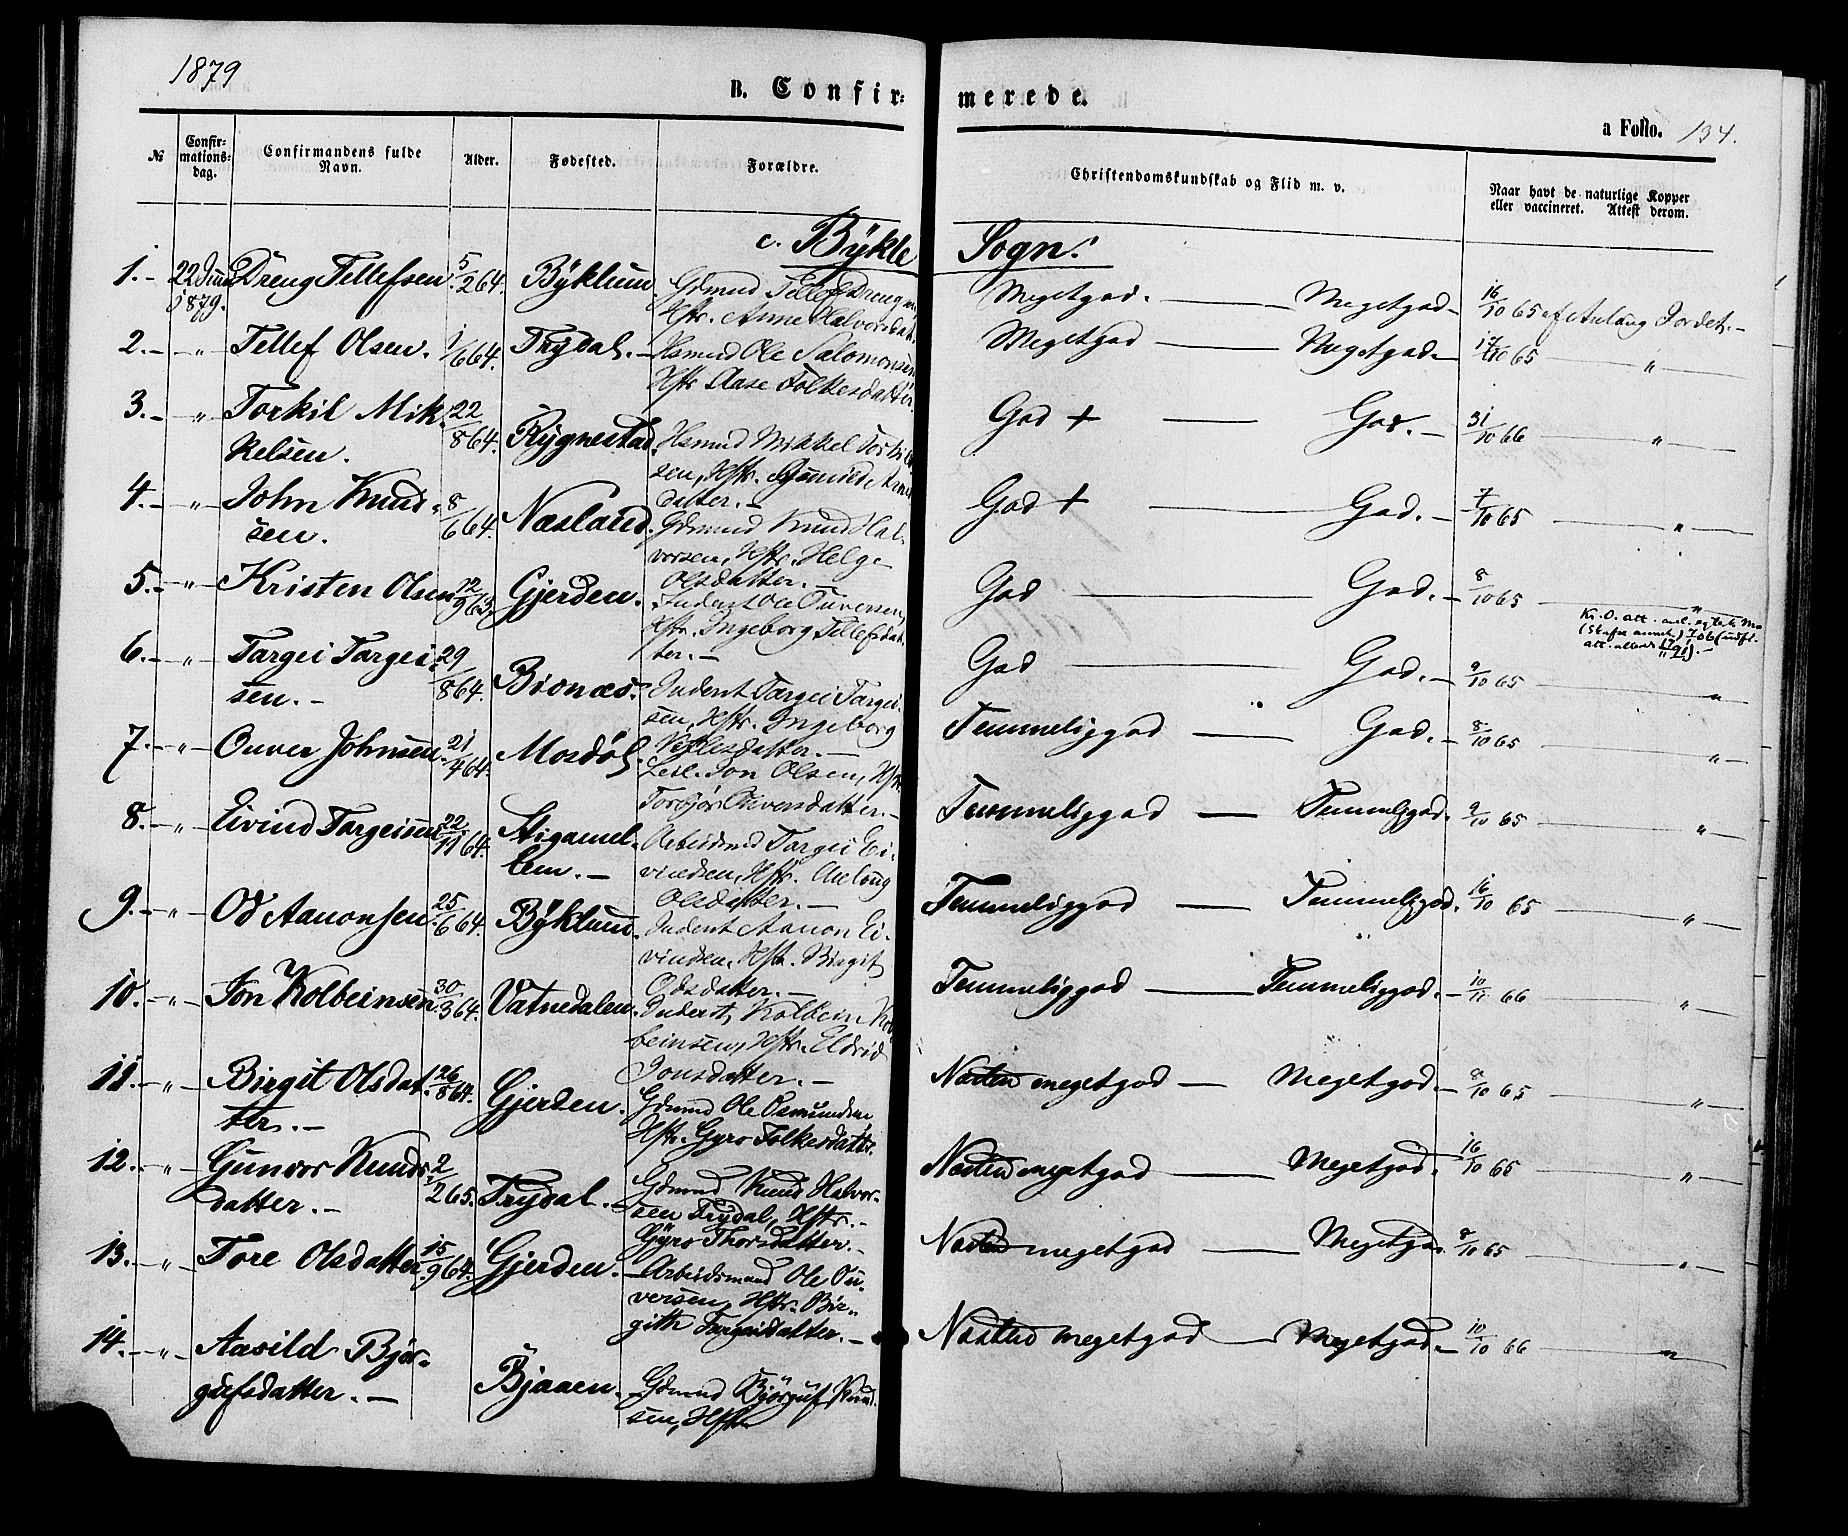 1879
B. Confir- merede.
a Folio. 134.
№
Confirmations-dag.
Confirmandens fulde Navn.
Alder.
Fødested.
Forældre.
Christendomskundskab og Flid m. v.
Naar havt de naturlige Kopper eller vaccineret. Attest derom.
c. Bykle Sogn.
1.- 22 Juni 1879. Dreng Tellefsen 5/2 64. Byklum Gdmnd Tellef Drengsen, Hstr. Anne Halvorsdat. Megetgod. — Megetgod 16/10 65 af Anlaug Jordet.-
2.- " - Tellef Olsen. 1/6 64. Trydal. - Hsmnd Ole Salomonsen Hstr Aase Folkesdatter. Megetgod — Megetgod 17/10 65 — "
3.- " Torkil Mikkelsen. 22/8 64. Rygnestad. Hsmnd Mikkel Torkilsen, Hstr. Gunild datter.- God + — God. - 31/10 66 — "
4.- " - John Knudsen. 8/6 64. Næsland. Gdmnd Knud Halvorsen, Hstr. Helge Olsdatter.- God + — God. - 7/10 65 — "
5.- " - Kristen Olsen 12/9 63. Gjerden. Inderst Ole Ouversen, Hstr. Ingeborg Tellefsdatter.- God — God. - 8/10 65 — "
Kr. O. att.
6.- " - Targei Targeisen.- 29/8 64. Bionæs. Inderst Targei Targeisen, Hstr. Ingeborg Vetlesdatter.- God — God. - 9/10 65 — "
7.- " - Ouver Johnsen 21/4 64. Mosdøl. Leil. Jon Olsen, Hstr. Torbjør Ouversdatter.- Temmeliggod — God. - 8/10 65 — "
8.- " - Eivind Targeisen 22/11 64. Stigamellem.- Arbeidsmd Targei Eivindsen, Hstr. Anlaug Olsdatter.- Temmeliggod — Temmeliggod. 9/10 65 — "
9.- " - Od Aanonsen 25/6 64. Byklum. Inderst Aanon Eivindsen, Hstr. Birgit Odsdatter.- Temmeliggod — Temmeliggod. 16/10 65 — "
10.- " - Jon Kolbeinsen 30/3 64. Vatnedalen. Inderst Kolbein Kolbeinsen, Hstr. Eldrid Jonsdatter.- Temmeliggod — Temmeliggod. - 10/11 66 — "
11.- " - Birgit Olsdatter.- 26/8 64. Gjerden. Gdmnd Ole Osmundsen, Hstr. Gyro Folkesdatter. Næsten megetgod — Megetgod. - 8/10 65 — "
12.- " - Gunvor Knudsdatter.- 2/2 65. Trydal. - Gdmnd Knud Halvorsen Trydal, Hstr.- Gyro Thorsdatter.- Næsten megetgod — Megetgod. 16/10 65 — "
13.- " - Tore Olsdatter 15/9 64. Gjerden. - Arbeidsmand Ole Ouversen, Hstr. Birgith Targeisdatter.- Næsten megetgod — Megetgod. 8/10 65 — "
14.- " - Aasild Bjørgufsdatter.- Bjaaen. - Gdmnd Bjørguf Knudsen, Hstr Næsten megetgod — Megetgod. - 10/10 66 — "